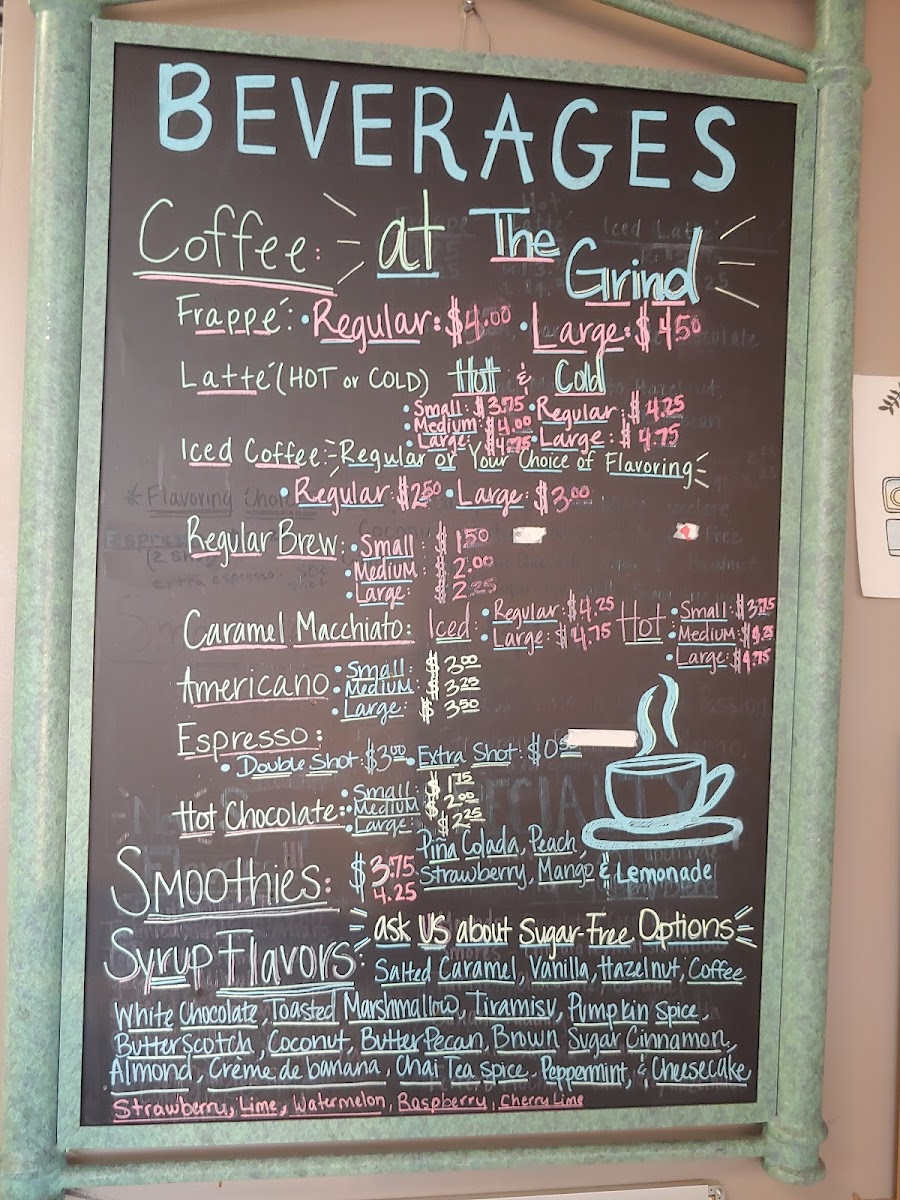 BEVERAGES
Coffee: at The Grind
Frappé: • Regular: $4.00 • Large: $4.50
Latté (HOT or COLD) Hot & Cold
• Small: $3.75 • Regular: $4.25
• Medium: $4.00
• Large: $4.75 • Large: $4.75
Iced Coffee: Regular or Your Choice of Flavoring
• Regular: $2.50 • Large: $3.00
Regular Brew: • Small: $1.50
• Medium: $2.00
• Large: $2.25
Caramel Macchiato: Iced • Regular: $4.25 Hot • Small: $3.75
• Large: $4.75 • Medium: $4.25
• Large: $4.75
Americano • Small: $3.00
• Medium: $3.25
• Large: $3.50
Espresso:
• Double Shot: $3.00 • Extra Shot: $0.50
Hot Chocolate: • Small: $1.75
• Medium: $2.00
• Large: $2.25
Smoothies: $3.75 Piña Colada, Peach,
4.25 Strawberry, Mango & Lemonade
ask US about Sugar-Free Options
Syrup Flavors: Salted Caramel, Vanilla, Hazelnut, Coffee
White Chocolate, Toasted Marshmallow, Tiramisu, Pumpkin Spice,
ButterScotch, Coconut, Butter Pecan, Brown Sugar Cinnamon,
Almond, Crème de banana, Chai Tea spice, Peppermint, & Cheesecake
Strawberry, Lime, Watermelon, Raspberry, Cherry Lime